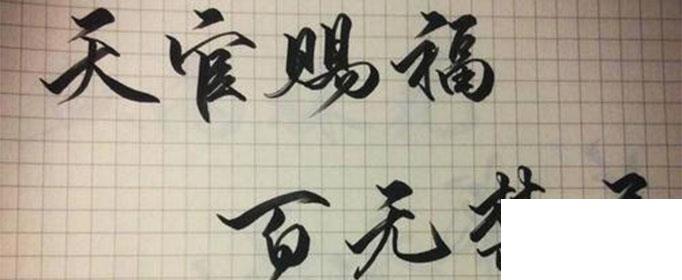 天官赐福
百无